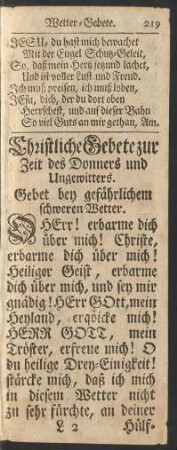 Wetter-Gebete. 219
JESU, du hast mich bewachet
Mit der Engel Schutz-Geleit,
So, daß mein Hertz jetzund lachet,
Und ist voller Lust und Freud.
Ich muß preisen, ich muß loben,
JEsu, dich, der du dort oben
Herrschest, und auf dieser Bahn
So viel Guts an mir gethan, Am.
Christliche Gebete zur
Zeit des Donners und
Ungewitters.
Gebet bey gefährlichem
schweren Wetter.
O HErr! erbarme dich
über mich! Christe,
erbarme dich über mich!
Heiliger Geist, erbarme
dich über mich, und sey mir
gnädig! HErr GOtt, mein
Heyland, erqvicke mich!
HERR GOTT, mein
Tröster, erfreue mich! O
du heilige Drey-Einigkeit!
stärcke mich, daß ich mich
in diesem Wetter nicht
zu sehr fürchte, an deiner
L 2 Hülf-